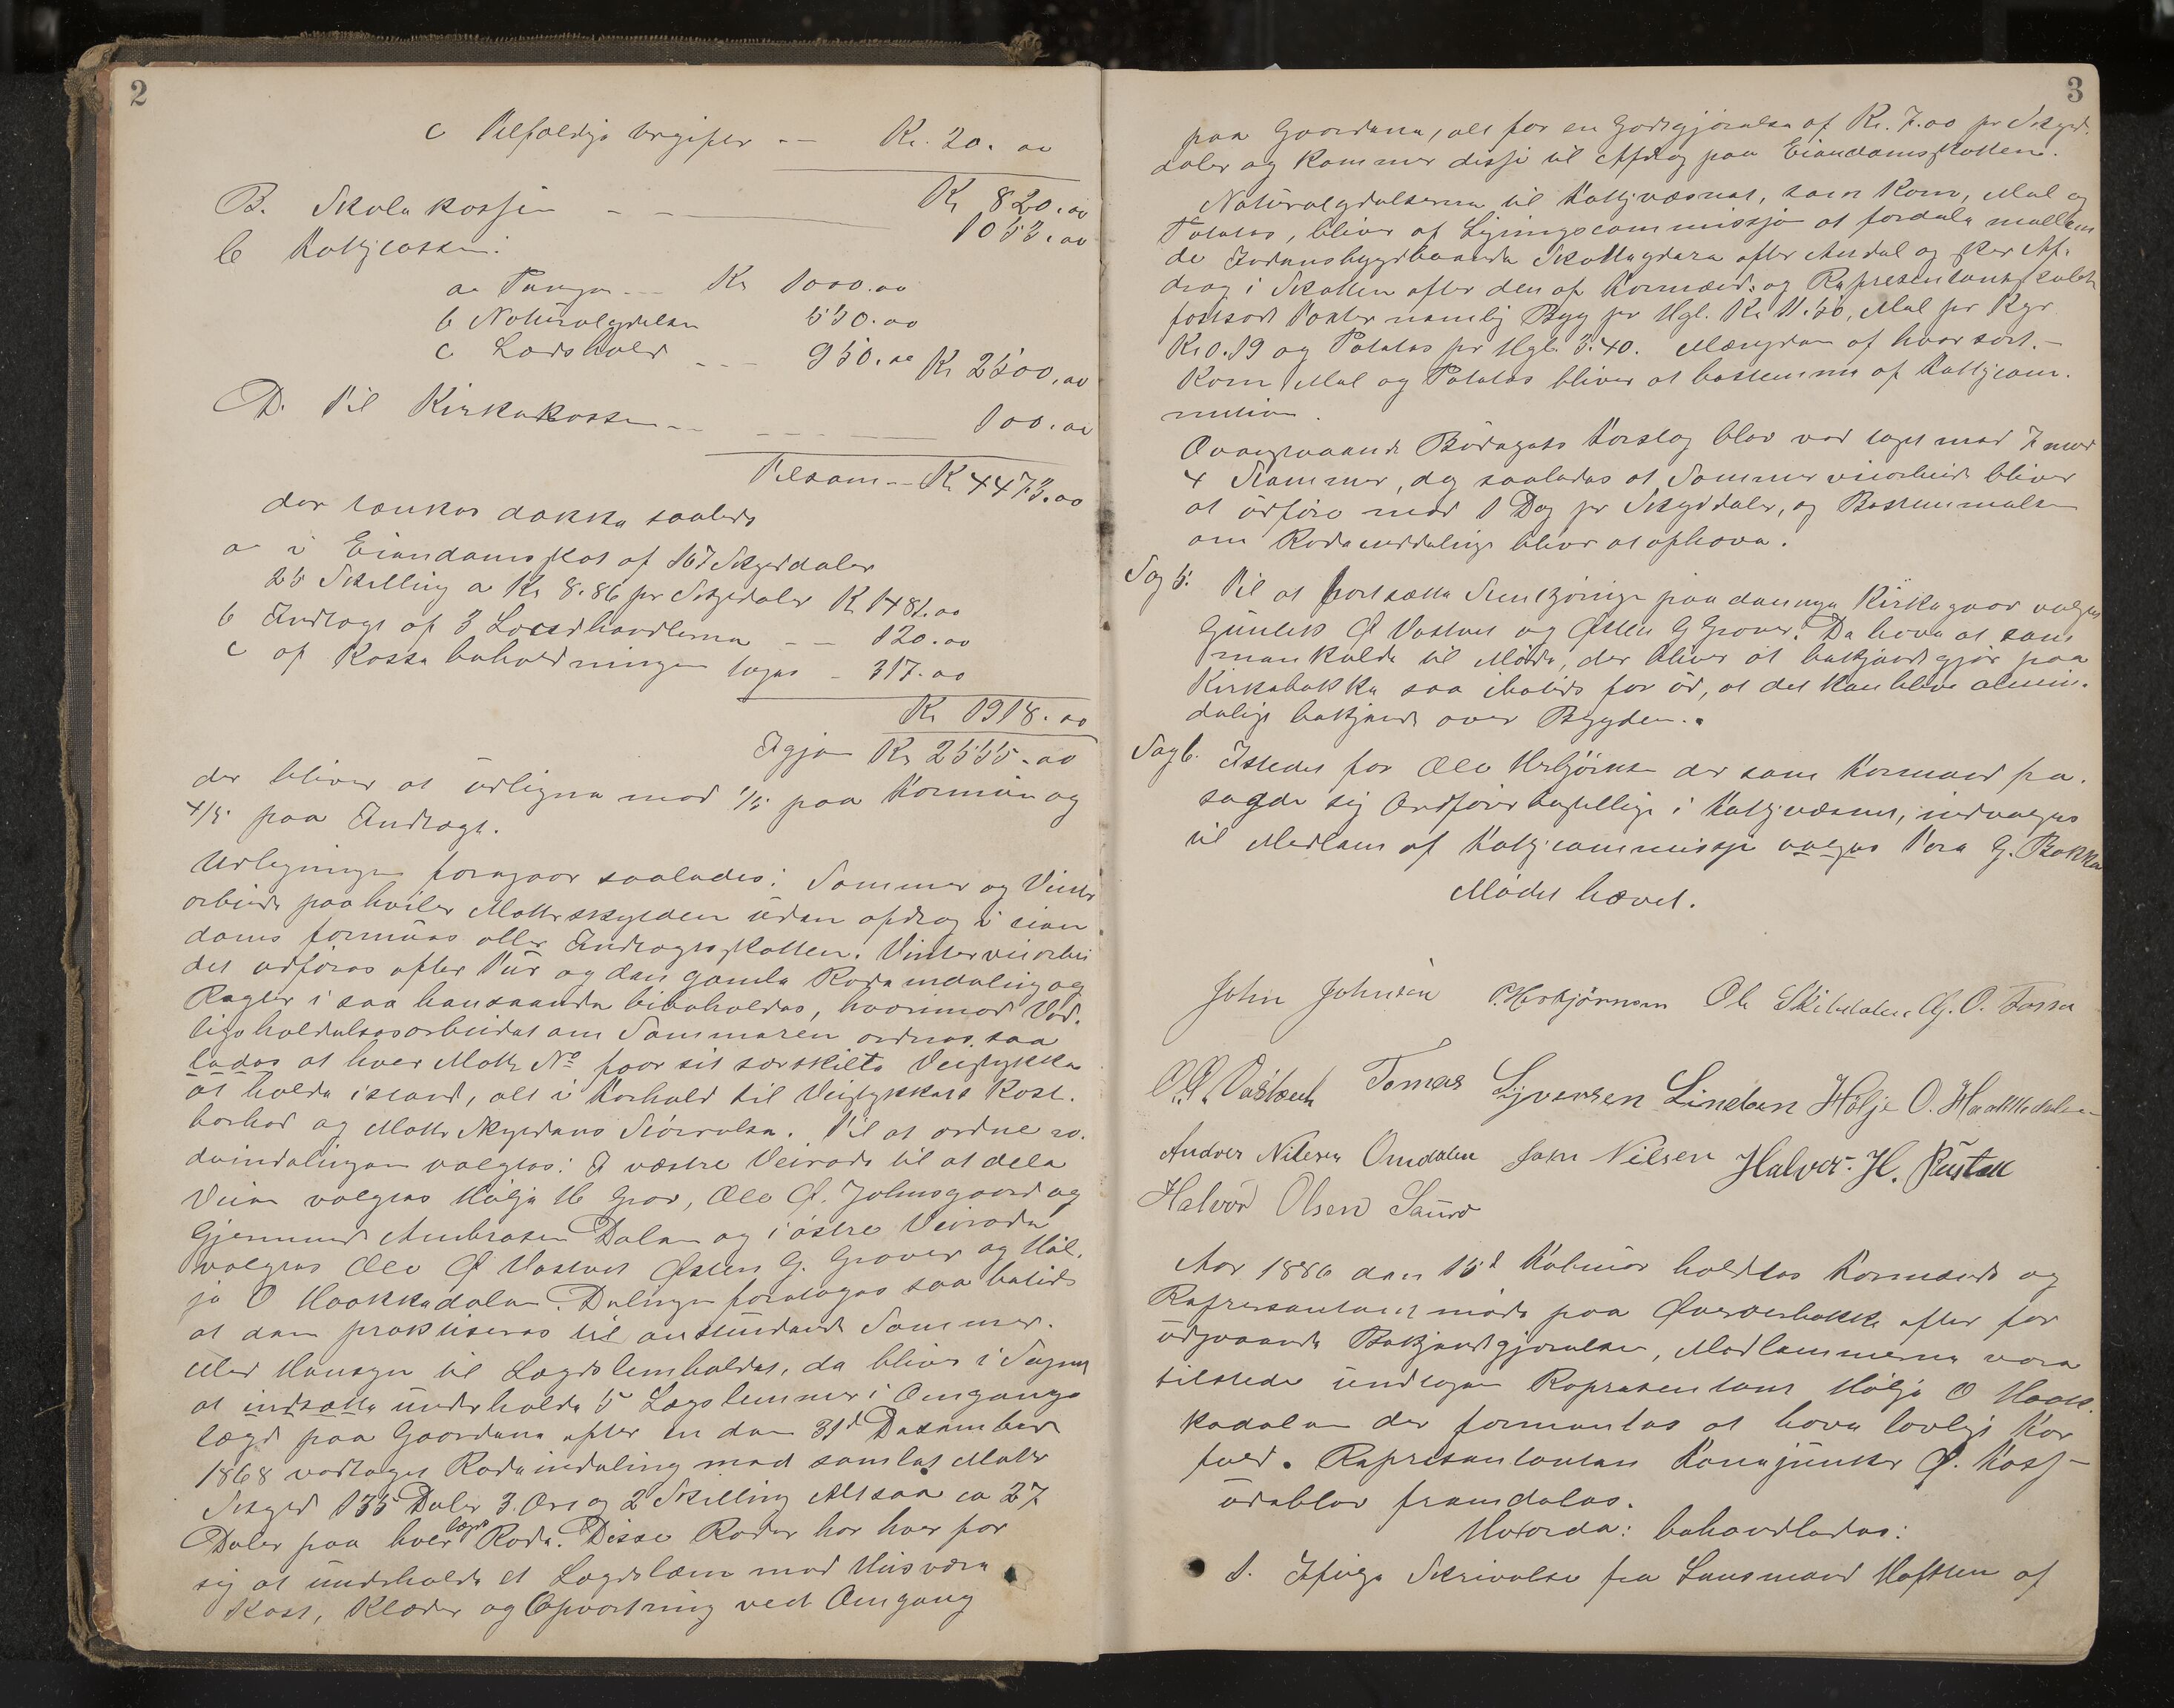 2
c Tilfældige Utgifter -- Kr. 20.00
Kr 820.00
B. Skolekassen - - 1053.00
C Fattigkassen:
a Penge -- Kr 1000.00
b Naturalydelse 550.00
c Lædshold -- 950.00 Kr 2500.00
D. Til Kirkekassen -- 100.00
Tilsam -- Kr 4473.00
der tænkes dække saaleds
a i Eiendomsskat af 167 Skyldaler
25 Skilling a Kr 8.86 pr Skyldaler Kr 1481.00
b Indtægt af 3 Landhandlerne -- 120.00
c af Kassebeholdningen tages - 317.00
Kr 1918.00
Igjen Kr 2555.00
der bliver at udligne med 1/5 paa Formue og
4/5 paa Indtægt.
Udligningen foregaar saaledes: Sommer og Vinter
arbeide paahviler Matrskylden uden afdrag i eien
doms formues eller Indtægtsskatten. Vinterveiarbei
det udføres efter Tur og den gamle Rodeinddeling og
Regler i saa henseende bibeholdes, hvorimod Ved-
ligeholdelsesarbeidet om Sommeren ordnes saa
ledes at hver Matr No faar sit særskilte Veistykke
at holde istand, alt i Forhold til Veistykkets Kost-
barhed og Matr Skyldens Størrelse. Til at ordne ro-
deinddelingen valgtes: I vestre Veirode til at dele
Veien valgtes Hølje H Grov, Ole O. Johnsgaard og
Gjermund Ambrosen Dalen og i østre Veirode
valgtes Ole O Vastveit Østen G. Grover og Høl-
je O Haakkedalen. Delingen foretages saa betids
at den praktiseres til anstundende Sommer.
Med Hensyn til Lægdslemholdet, da blives i Sognet
at indsætte underholde 5 Lægdslemmer i Omgangs
lægd paa Gaardene efter en den 31d Desember
1868 vedtaget Rodeinddeling med samlet Matr
Skyld 135 Daler 3 Ort og 2 Skilling Altsaa ca 27
Daler paa hver lægds Rode. Disse Roder har hver for
sig at underholde et Lægdslem med Husvære
Kost, Klæder og Opvartning ved Omgang
3
paa Gaardene, alt for en Godtgjørelse af Kr. 7.00 pr Skyld-
daler og kommer disse til Afdrag paa Eiendomsskatten.
Naturalydelserne til Fattigvæsnet, som Korn, Mel og
Potetes, bliver af Ligningscommissjon at fordele mellem
de Jordbrugsbygbaande Skatteydere efter Andel og sker Af-
drag i Skatten efter den af Formænd- og Representantskabet
fastsat Taxter nemlig Byg pr Hgl. Kr 11.50, Mel pr Kgr
Kr 0.19 og Potetes pr Hgl. 3.40. Mængden af hver sort -
Korn Mel og Potetes bliver at bestemme af Fattigcom-
mission.
Ovanstaaende Budgets Forslag blev ved taget med 7 mod
4 Stemmer, dog saaledes at Sommerveiarbeide bliver
at udføre med 1 Dag pr Skylddaler, og Bestemmelse
om Rodeinddeling bliver at ophøve.
Sag 5. Til at fortsætte Stenkjøring paa den nye Kirkegaard valgtes
Gunleik O Vastveit og Østen G Grover. De have at sam
menkalde til Møde, der bliver at bekjendtgjør paa
Kirkebakke saa ibetids for ud, at det kan blive almin-
delige bekjendt over Bygden.
Sag 6. Istedet for Ole Herbjørnsen der som Formand fra-
sagde sig Ordførerbestillige i Fattigvæsnet, indvalgtes
til Medlem af Fattigcommission valgtes Tore G. Bakka
Mødet hævet.
John Johnsen O. Herbjörnsen Ole Skibdalen G. O. Fosse
O. O. Västveit Tomas Syversen Linden Hölje O. Haakkedalen
Andres Nilsen Omdalen John Nilsen Halvor. H. Rustak
Halvor Olsen Saurd
Aar 1886 den 15d Februar holdtes Formænds og
Representantmøde paa Øverbøbakke efter for
udgaaende Bekjendtgjørelse, Medlemmerne vare
tilstede undtagen Representant Hølje O Haak-
kedalen der formentes at have lovlige For
fald. Representanten Kondjunker O. Foss-
udeblev fremdeles.
Hvorda: behandledes:
1. Ifølge Skrivelse fra Lensmand Hoffsten af